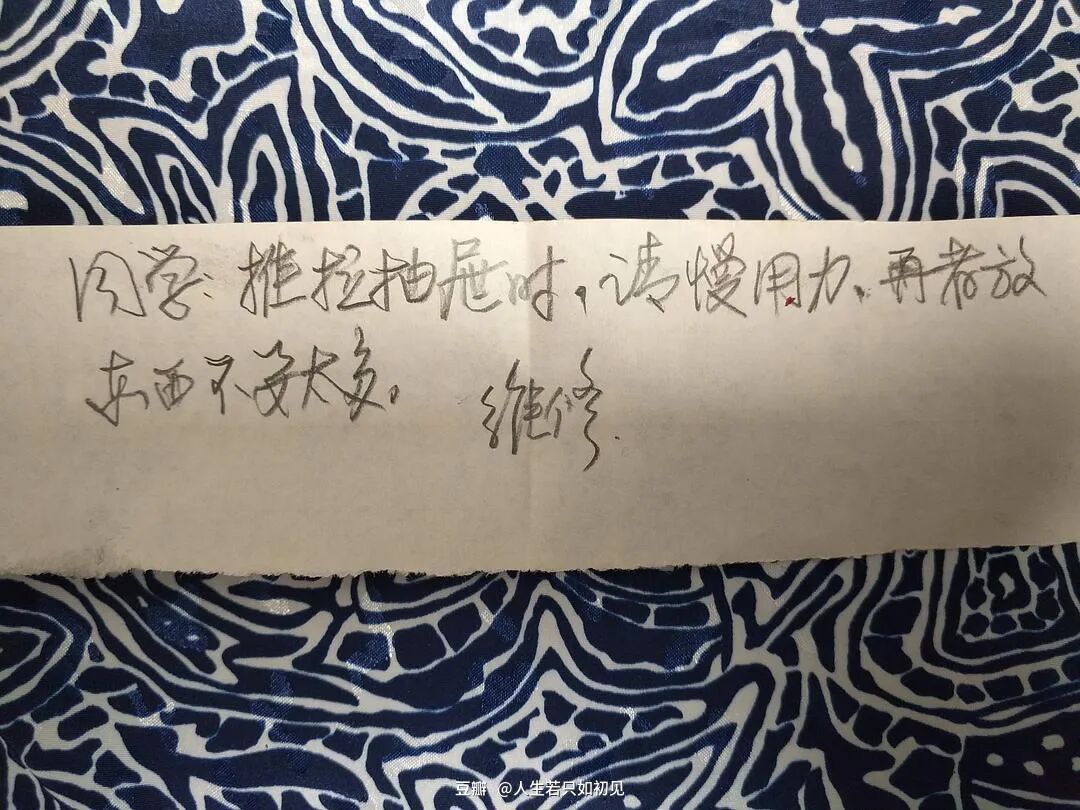 同学:推拉抽屉时,请慢用力、再者放
东西不要太多。 维修.
豆瓣 @人生若只如初见